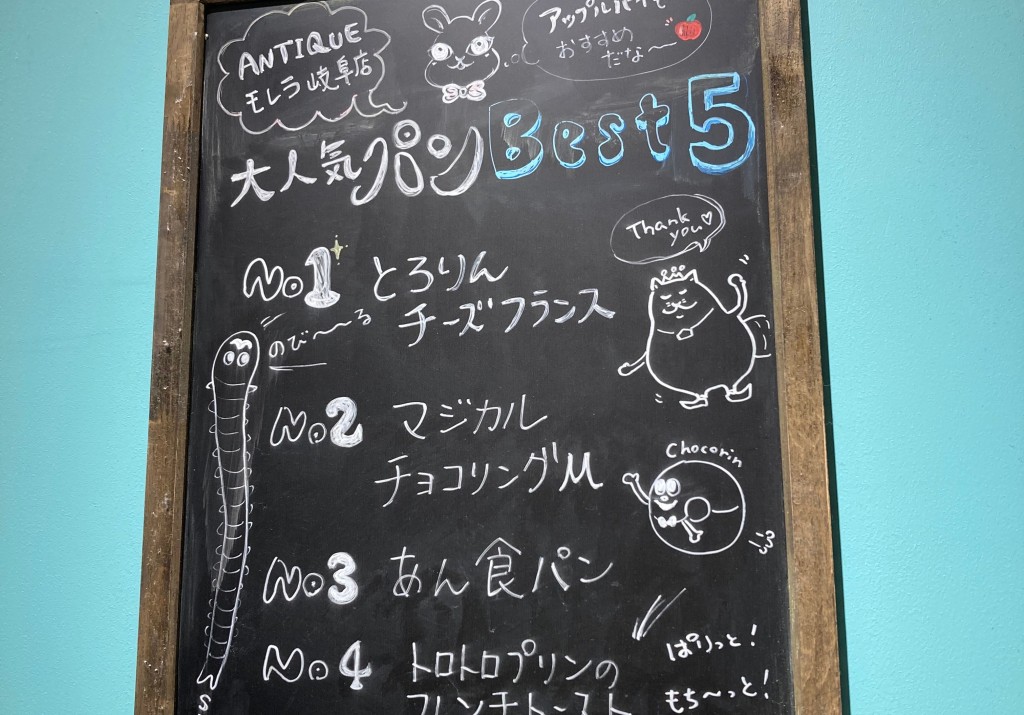 ANTIQUE
モレラ岐阜店
アップルパイも
おすすめ
だな〜
大人気パン Best 5
No.1 とろりん
チーズフランス
Thank
you♡
のび〜〜る
No.2 マジカル
チョコリングM
Chocorin
No.3 あん食パン
No.4 トロトロプリンの
フレンチトースト
ぱりっと!
もち〜っと!